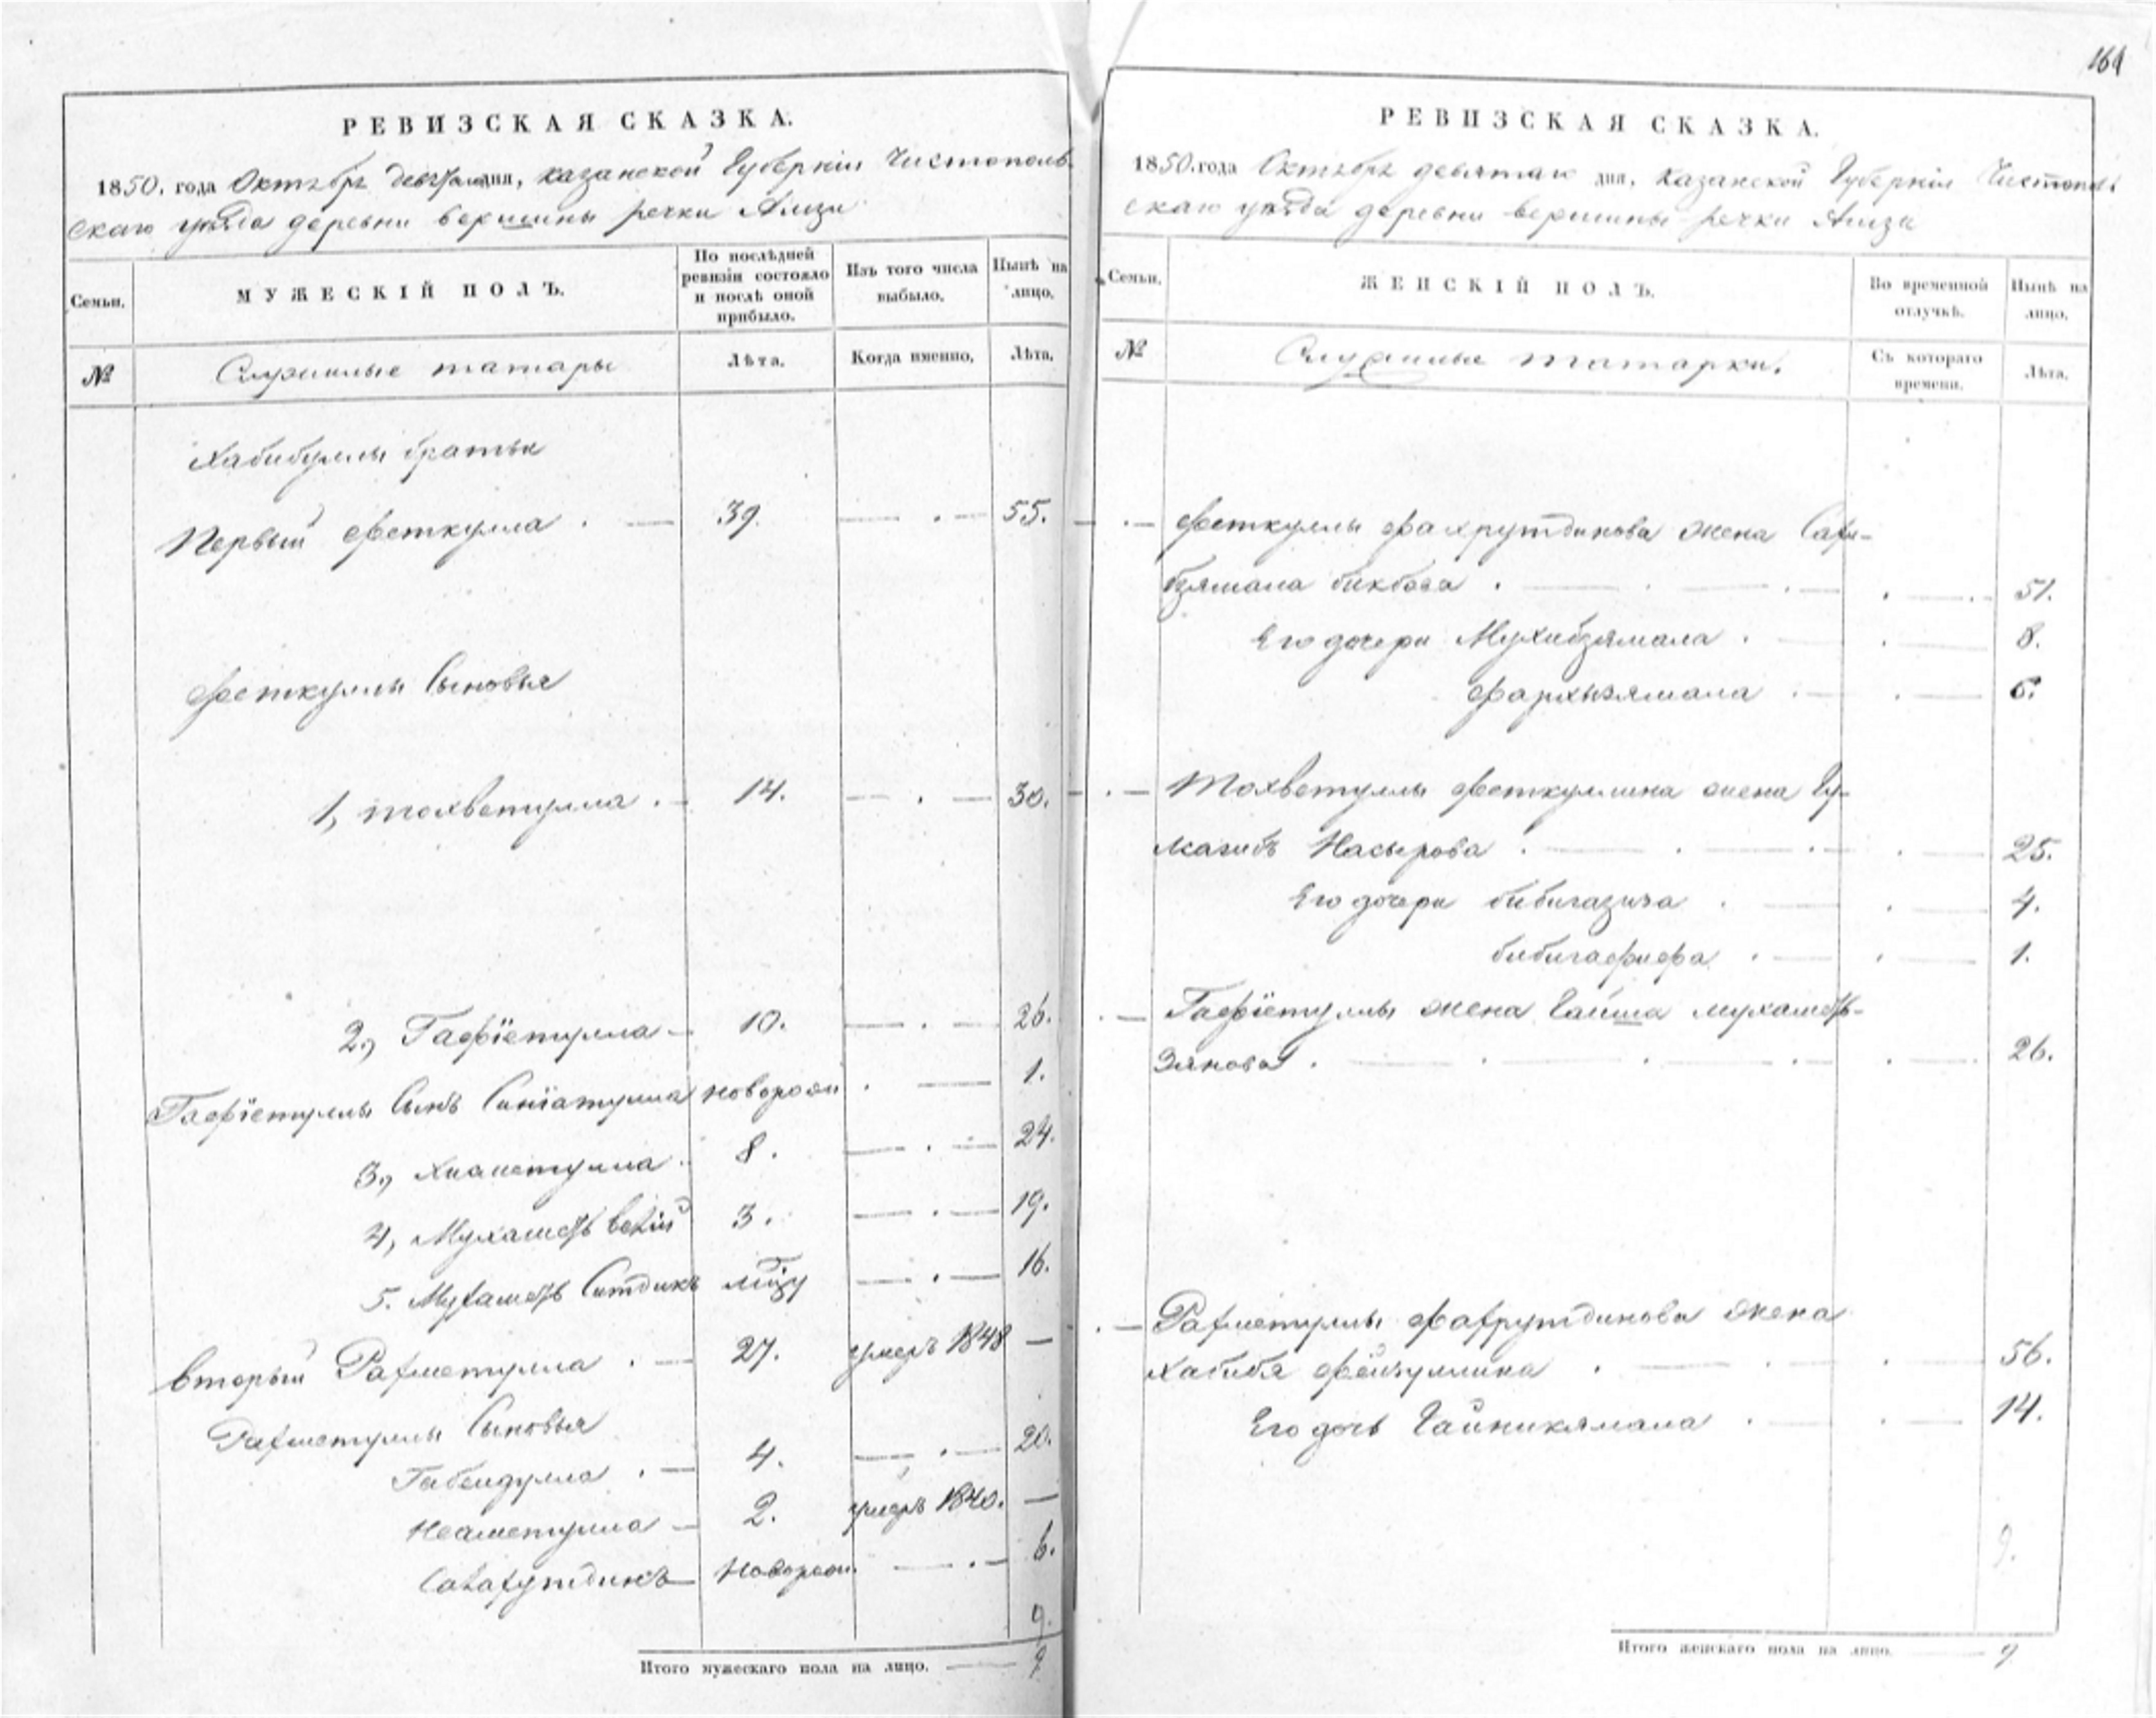 164
РЕВИЗСКАЯ СКАЗКА.
1850. года Октября девятаго дня, Казанской Губернiи Чистополь-
скаго уѣзда деревни вершины речки Амзи
Семьи.
МУЖЕСКIЙ ПОЛЪ.
По послѣдней ревизiи состояло и послѣ оной прибыло.
Изъ того числа выбыло.
Нынѣ на лицо.
№
Служилые татары
Лѣта.
Когда именно.
Лѣта.
Хабибуллы братья
Первый Феткулла . — 39. — . — 55.
Феткуллы Сыновья
1, Тохветулла . — 14. — . — 30.
2., Гафïетулла — 10. — . — 26.
Гафïетуллы Сынъ Синïатулла новорож . — 1.
3., Хиаметулла . 8. — . — 24.
4, Мухаметь Велiй 3. — . — 19.
5. Мухаметь Ситдикъ — . — 16.
Вторый Рахметулла . — 27. умеръ 1848 —
Рахметуллы Сыновья
Габейдулла . — 4. — . — 20.
Неаметулла — 2. умеръ 1840. —
Салахутдинъ — Новорож. — . — 6.
9.
Итого мужескаго пола на лицо. — 9
РЕВИЗСКАЯ СКАЗКА.
1850. года Октября девятаго дня, Казанской Губернiи Чистополь-
скаго уѣзда деревни вершины речки Амзи
Семьи.
ЖЕНСКIЙ ПОЛЪ.
Во временной отлучкѣ.
Нынѣ на лицо.
№
Служилые татарки.
Съ котораго времени.
Лѣта.
. — Феткуллы Фахрутдинова жена Сахи-
бзямала . — . — 51.
Его дочери Мухибзямала . — . — 8.
Фархызямала . — . — 6.
. — Тохветуллы Феткуллина жена Гу-
Насырова . — . — 25.
Его дочери бибигазиза . — . — 4.
бибигафифа . — . — 1.
. — Гафïетуллы жена Гайша Мухаметь-
зянова . — . — 26.
. — Рахметуллы Фахрутдинова жена
Хабибя Фейзуллина . — . — 56.
Его дочь Гайникямала . — . — 14.
9.
Итого женскаго пола на лицо. — 9